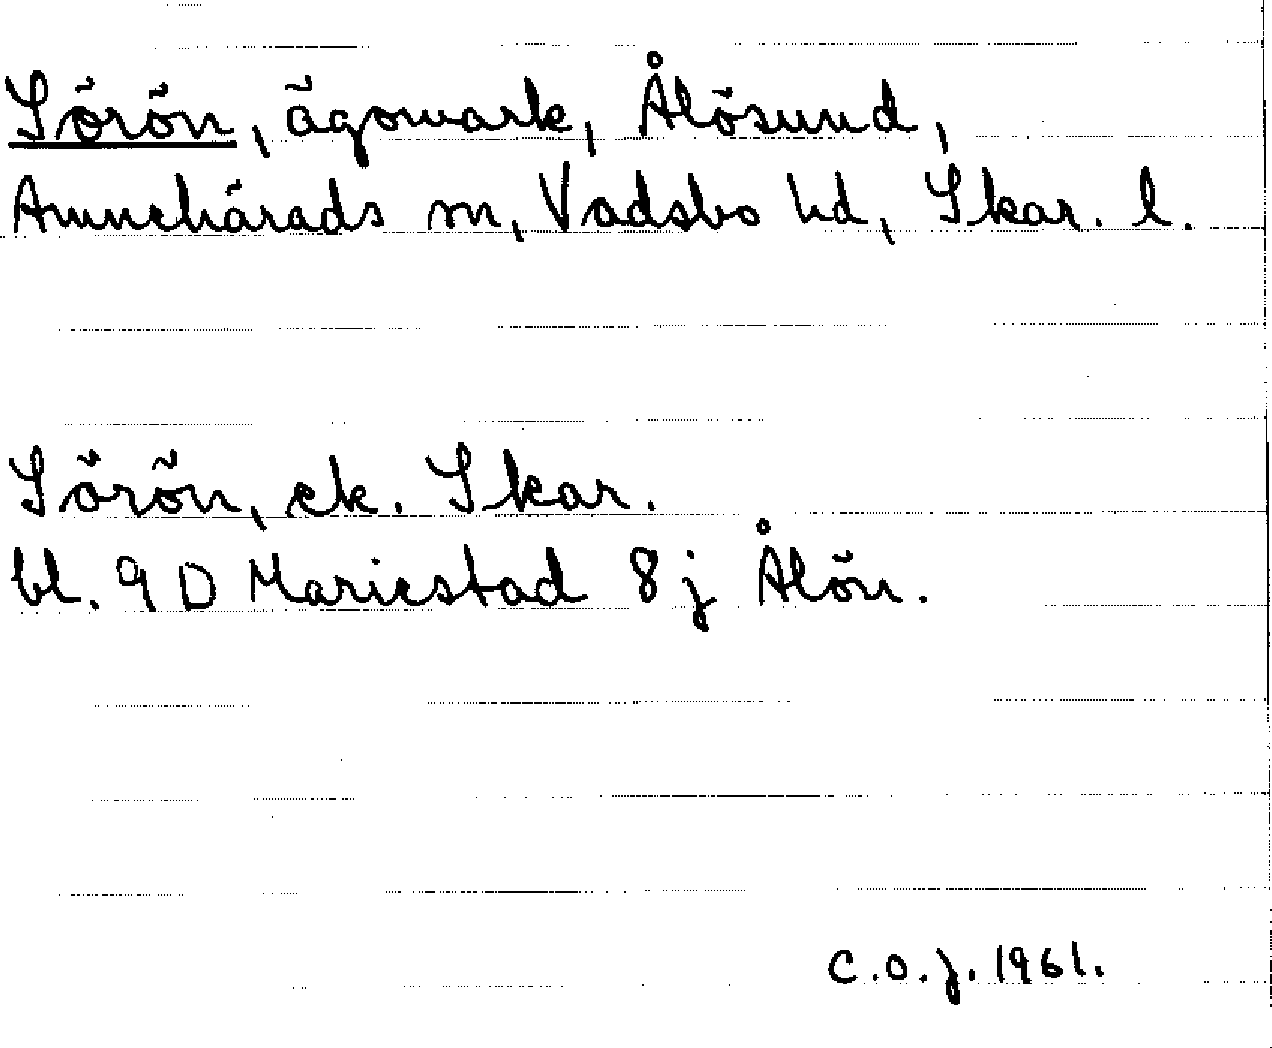 Sörön, ägomark, Ålösund,
Amnehärads sn, Vadsbo hd, Skar. l.
Sörön, ek. Skar.
bl. 9 D Mariestad 8 j Ålön.
C.O.J. 1961.